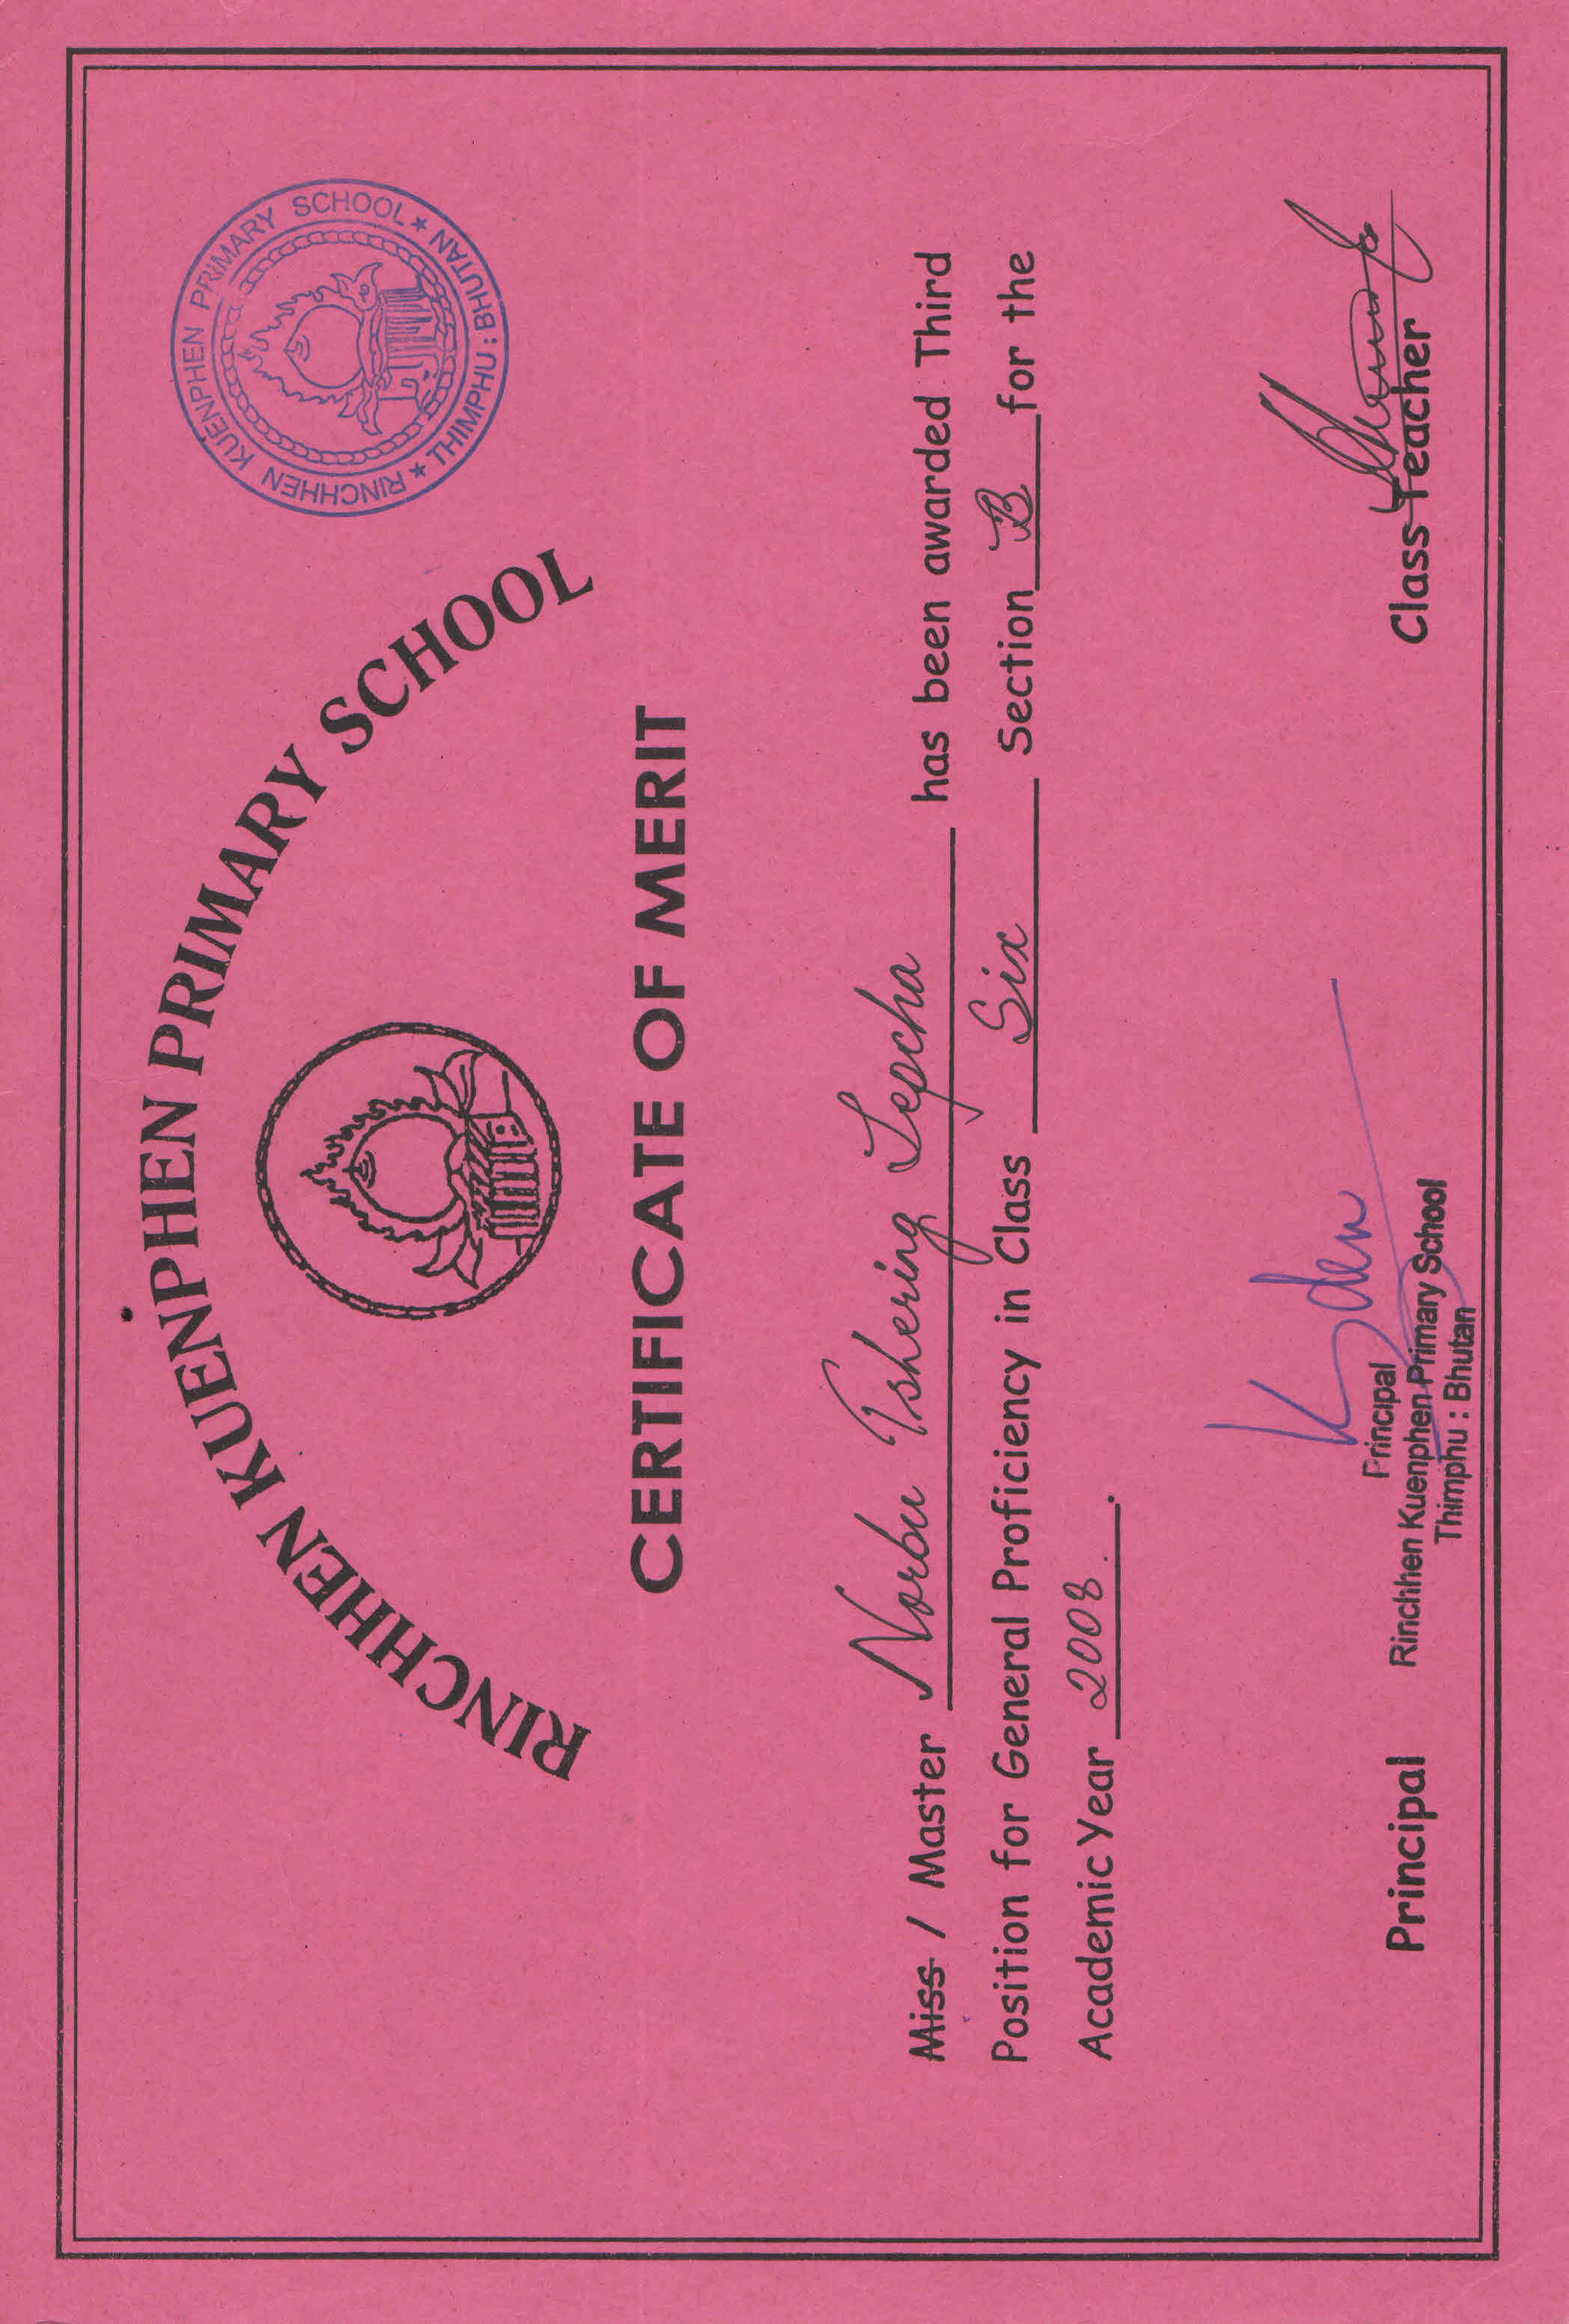 RINCHHEN KUENPHEN PRIMARY SCHOOL
RINCHHEN KUENPHEN PRIMARY SCHOOL
★ THIMPHU : BHUTAN ★
CERTIFICATE OF MERIT
Miss / Master Norbu Tshering Lepcha has been awarded Third
Position for General Proficiency in Class Six Section B for the
Academic Year 2008.
Principal
Principal
Rinchhen Kuenphen Primary School
Thimphu : Bhutan
Class Teacher